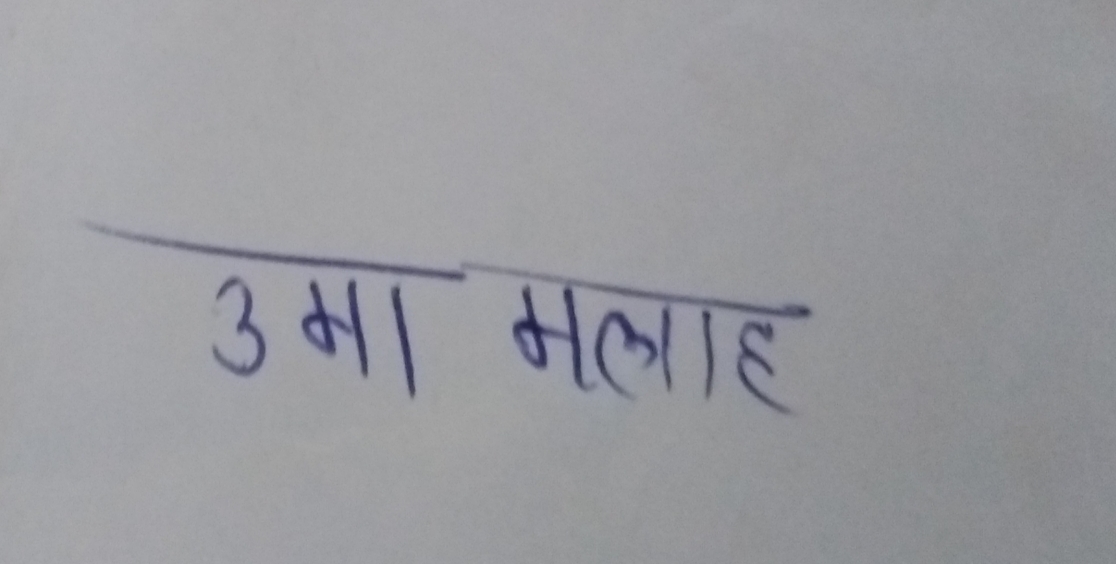 उमा मलाह